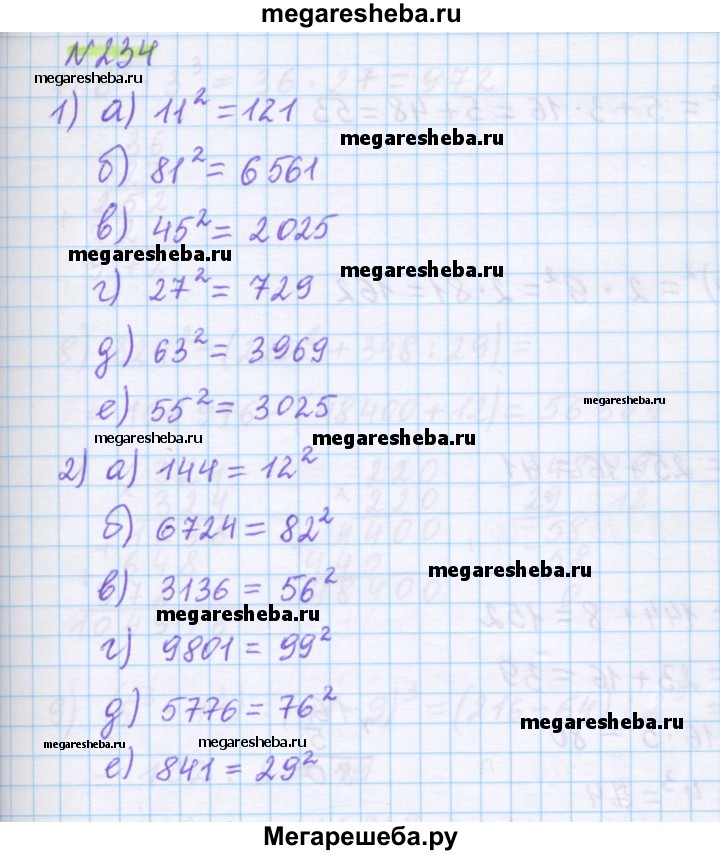 megaresheba.ru
№234
megaresheba.ru
1) а) 11² = 121
megaresheba.ru
б) 81² = 6561
в) 45² = 2025
megaresheba.ru
megaresheba.ru
г) 27² = 729
д) 63² = 3969
megaresheba.ru
е) 55² = 3025
megaresheba.ru
megaresheba.ru
2) а) 144 = 12²
б) 6724 = 82²
megaresheba.ru
в) 3136 = 56²
megaresheba.ru
г) 9801 = 99²
д) 5776 = 76²
megaresheba.ru
megaresheba.ru
megaresheba.ru
е) 841 = 29²
Мегарешеба.ру